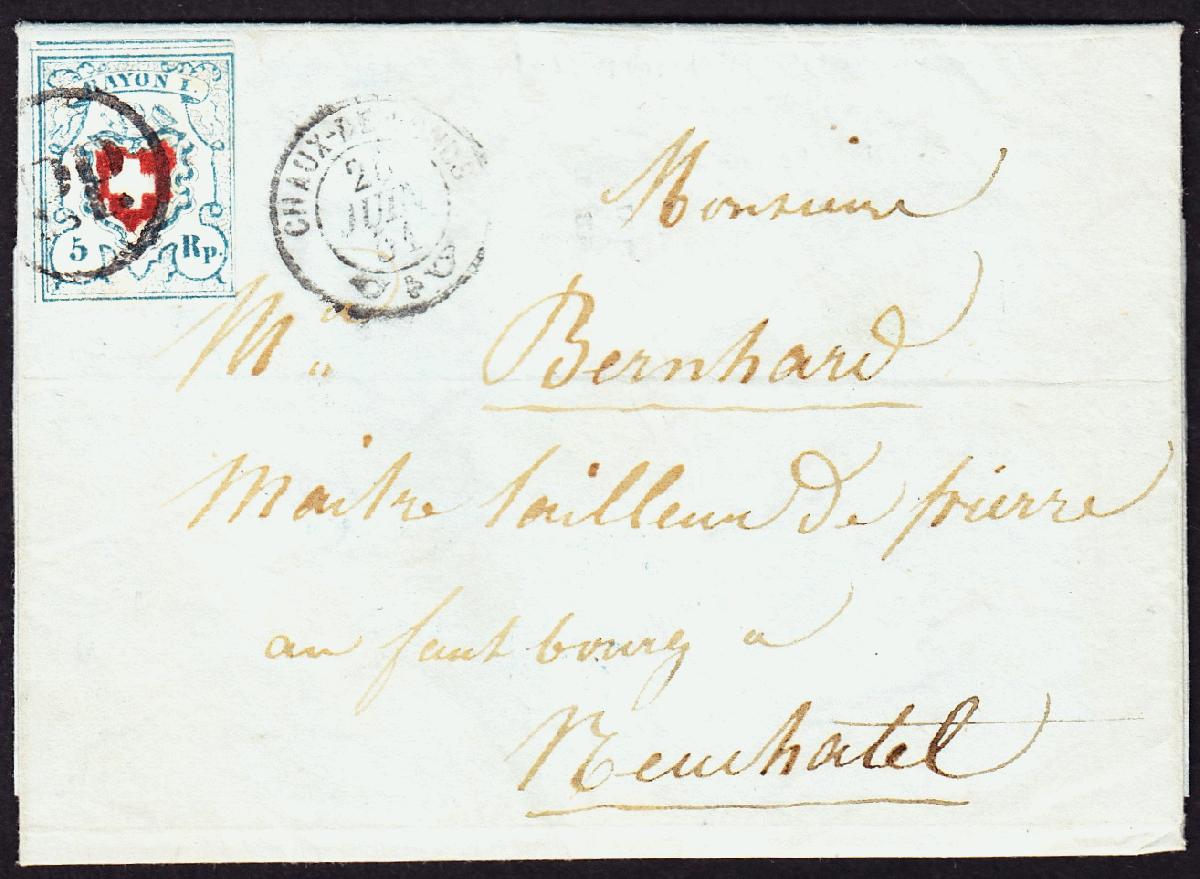 RAYON I.
5 Rp.
CHAUX-DE-FONDS
JUIN
51
Monsieur
Bernhard
Maitre tailleur de pierre
au fautbourg a
Neuchatel